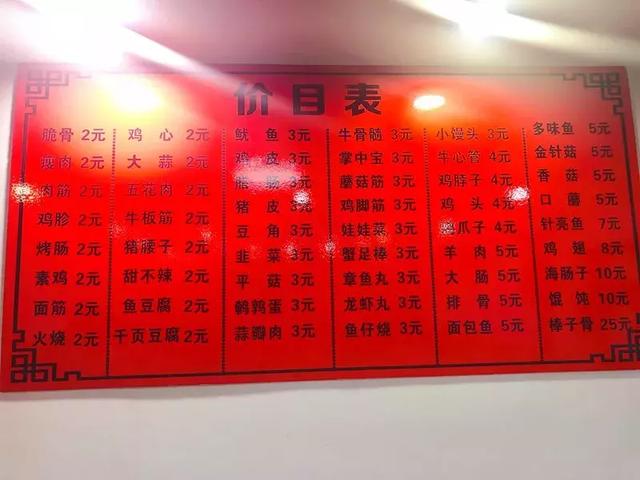 价目表
脆骨 2元
瘦肉 2元
肉筋 2元
鸡胗 2元
烤肠 2元
素鸡 2元
面筋 2元
火烧 2元
鸡心 2元
大蒜 2元
五花肉 2元
牛板筋 2元
猪腰子 2元
甜不辣 2元
鱼豆腐 2元
千页豆腐 2元
鱿鱼 3元
鸡皮 3元
腊肠 3元
猪皮 3元
豆角 3元
韭菜 3元
平菇 3元
鹌鹑蛋 3元
蒜瓣肉 3元
牛骨髓 3元
掌中宝 3元
蘑菇筋 3元
鸡脚筋 3元
娃娃菜 3元
蟹足棒 3元
章鱼丸 3元
龙虾丸 3元
鱼仔烧 3元
小馒头 3元
牛心管 4元
鸡脖子 4元
鸡头 4元
鸡爪子 4元
羊肉 5元
大肠 5元
排骨 5元
面包鱼 5元
多味鱼 5元
金针菇 5元
香菇 5元
口蘑 5元
针亮鱼 7元
鸡翅 8元
海肠子 10元
馄饨 10元
棒子骨 25元